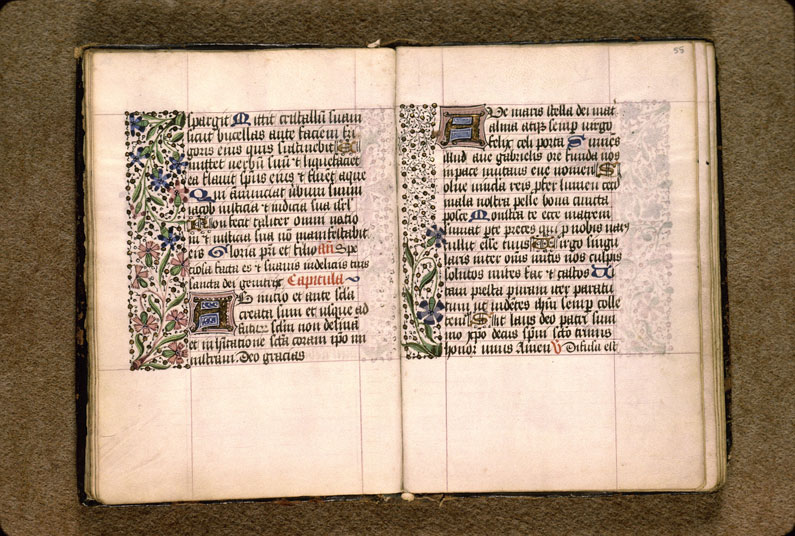 spargit Mittit cristallū suam
sicut bucellas ante faciem fri
goris eius quis sustinebit E
mittet verbū suū & liquefaciet
ea flauit spūs eius & fluēt aque
Qui ānunciat ūbum suum
iacob iusticia & iudicia sua isrl
Non fecit taliter omni natio
ni & iudicia sua nō manifestabit
eis Gloria pri et filio Añ Spe
ciosa facta es & suauis indeliciis tuis
sancta dei genitrix Capitula
Ab inicio et ante scla
creata sum et usque ad
futurū sclm non desinā
et in hītatione sctā coram ipo mi
nistraui Deo gracias
55
Ave maris stella dei mat
alma atqz semp uirgo
felix celi porta Sumes
illud aue gabrielis ore funda nos
in pace mutans eue nomen S
olue uincla reis pfer lumen cecis
mala nostra pelle bona cuncta
posce Monstra te esse matrem
sumat per te preces qui p nobis nat9
tulit esse tuus Virgo singu
laris inter oms mitis nos culpis
solutos mites fac & castos Vi
tam presta puram iter para tu
tum ut uidētes ihm semp colle
temr Sit laus deo patri sum
mo xpo decus spiui scto trinus
honor unus Amen V Difusa est